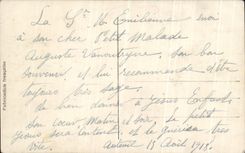 La Sr. M. Emilienne
à son cher Petit Malade
Auguste Vanoutryve, son bon
souvenir, et lui recommande d'être
toujours très sage,
de bien donner à Jésus Enfant
son cœur Matin et Soir, le petit
Jésus sera content et le guérira très
vite. Auteuil 15 Août 1915.
Fabrication française